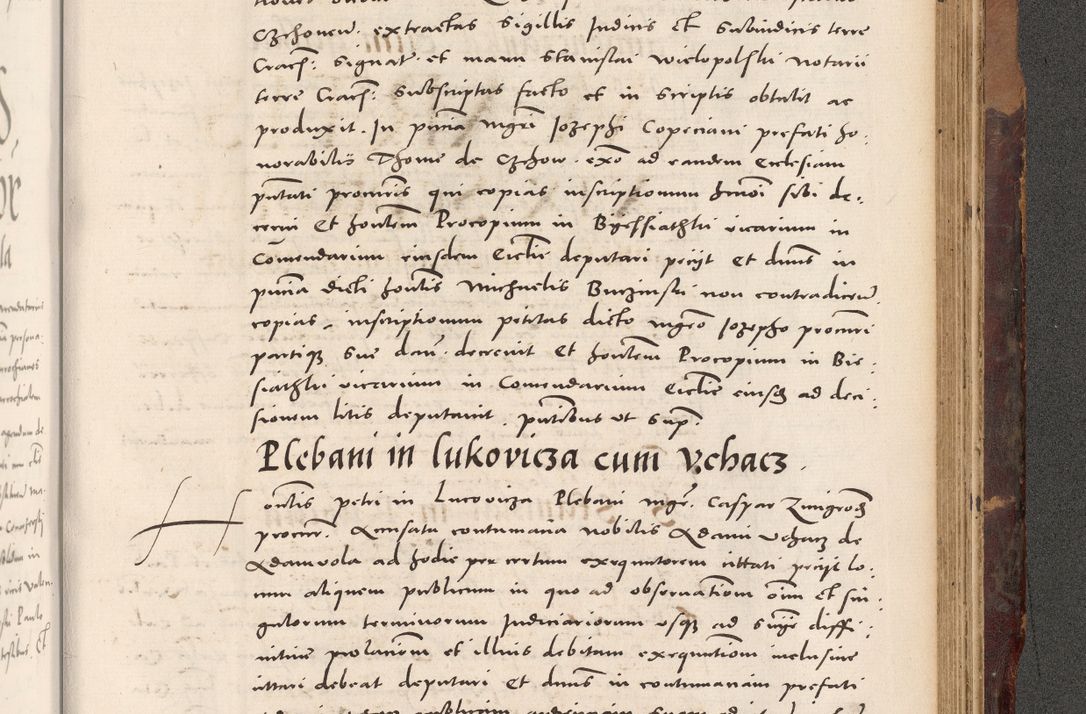 Czchoven. extractas sigillis Iudicis et Subiudicis terre
Cracẽ: signat. et manu Stanislai Wielopolski Notarii
terre Cracẽ: subscriptas facto et in scriptis obtulit ac
produxit. In pñcia mgri Iozephi Copeciani prefati ho:
norabilis Thome de Czchow. exõ ad eandem Ecclesiam
pñtati procuris qui copias inscriptionum hmoi sibi de:
cerni et hontem Procopium in Byessiathki vicarium in
Comendarium eiusdem Ecclie deputari peciit et dnus in
pñcia dicti hontis Michaelis Buczinski non contradicen̄.
copias inscriptionum petitas dicto mgro Iozepho procuri
partiqz sue dan̄. decrevit et hontem Procopium in Bie:
siathki vicarium in Comendarium Ecclie eiusd ad deci:
sionem litis deputavit. pñtibus ut sup.
Plebani in lukovicza cum Vchacz.
Hontis petri in Lucovicza Plebani mgr. Caspar Zmigrod
procur. Accusata contumacia nobilis Adami Vchacz de
Adamvola ad hodie per certum exequutorem cittati peciit lo:
cum aliquem publicum in quo ad observationem oim et sin:
gulorum terminorum Iudiciariorum usqz ad snie diffi:
nitive prolacionem et illius debitam exequutionem inclusive
cittari debeat deputari et dnus in contumaciam prefati